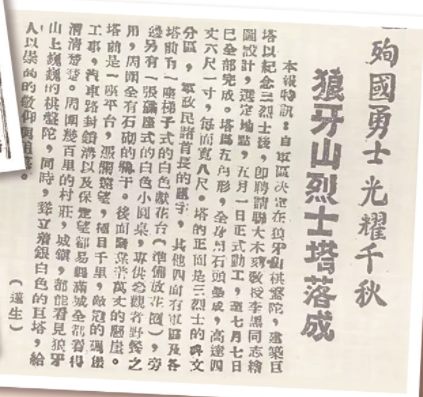 殉國勇士 光耀千秋
狼牙山烈士塔落成
本報特訊：自軍區決定在狼牙山棋盤陀，建築巨
塔以紀念三烈士後，即聘請聯大木刻教授李黑同志繪
圖設計，選定地點，五月一日正式動工，至七月七日
已全部完成。塔爲五角形，全身用石頭壘成，高達四
丈六尺一寸，每面寬八尺。塔的正面是三烈士的碑文
分區，軍政民諸首長的題字，其他四面有軍區及各
塔前有一座梯子式的白色獻花台（準備放花圈），旁
邊另有一張 座式的白色小圓桌，專供參觀者野餐之
用，周圍全有石砌的欄干。後面臨 着萬丈的懸崖。
塔前是一座平台，憑欄遠望，極目千里，敵寇的碉堡
工事，汽車路封鎖溝以及保定望都易縣滿城全部看得
清清楚楚。周圍幾百里的村莊，城鎮，都能看見狼牙
山上巍巍的棋盤陀，同時，聳立着銀白色的巨塔，給
人以崇高的敬仰與 。
（蓬生）